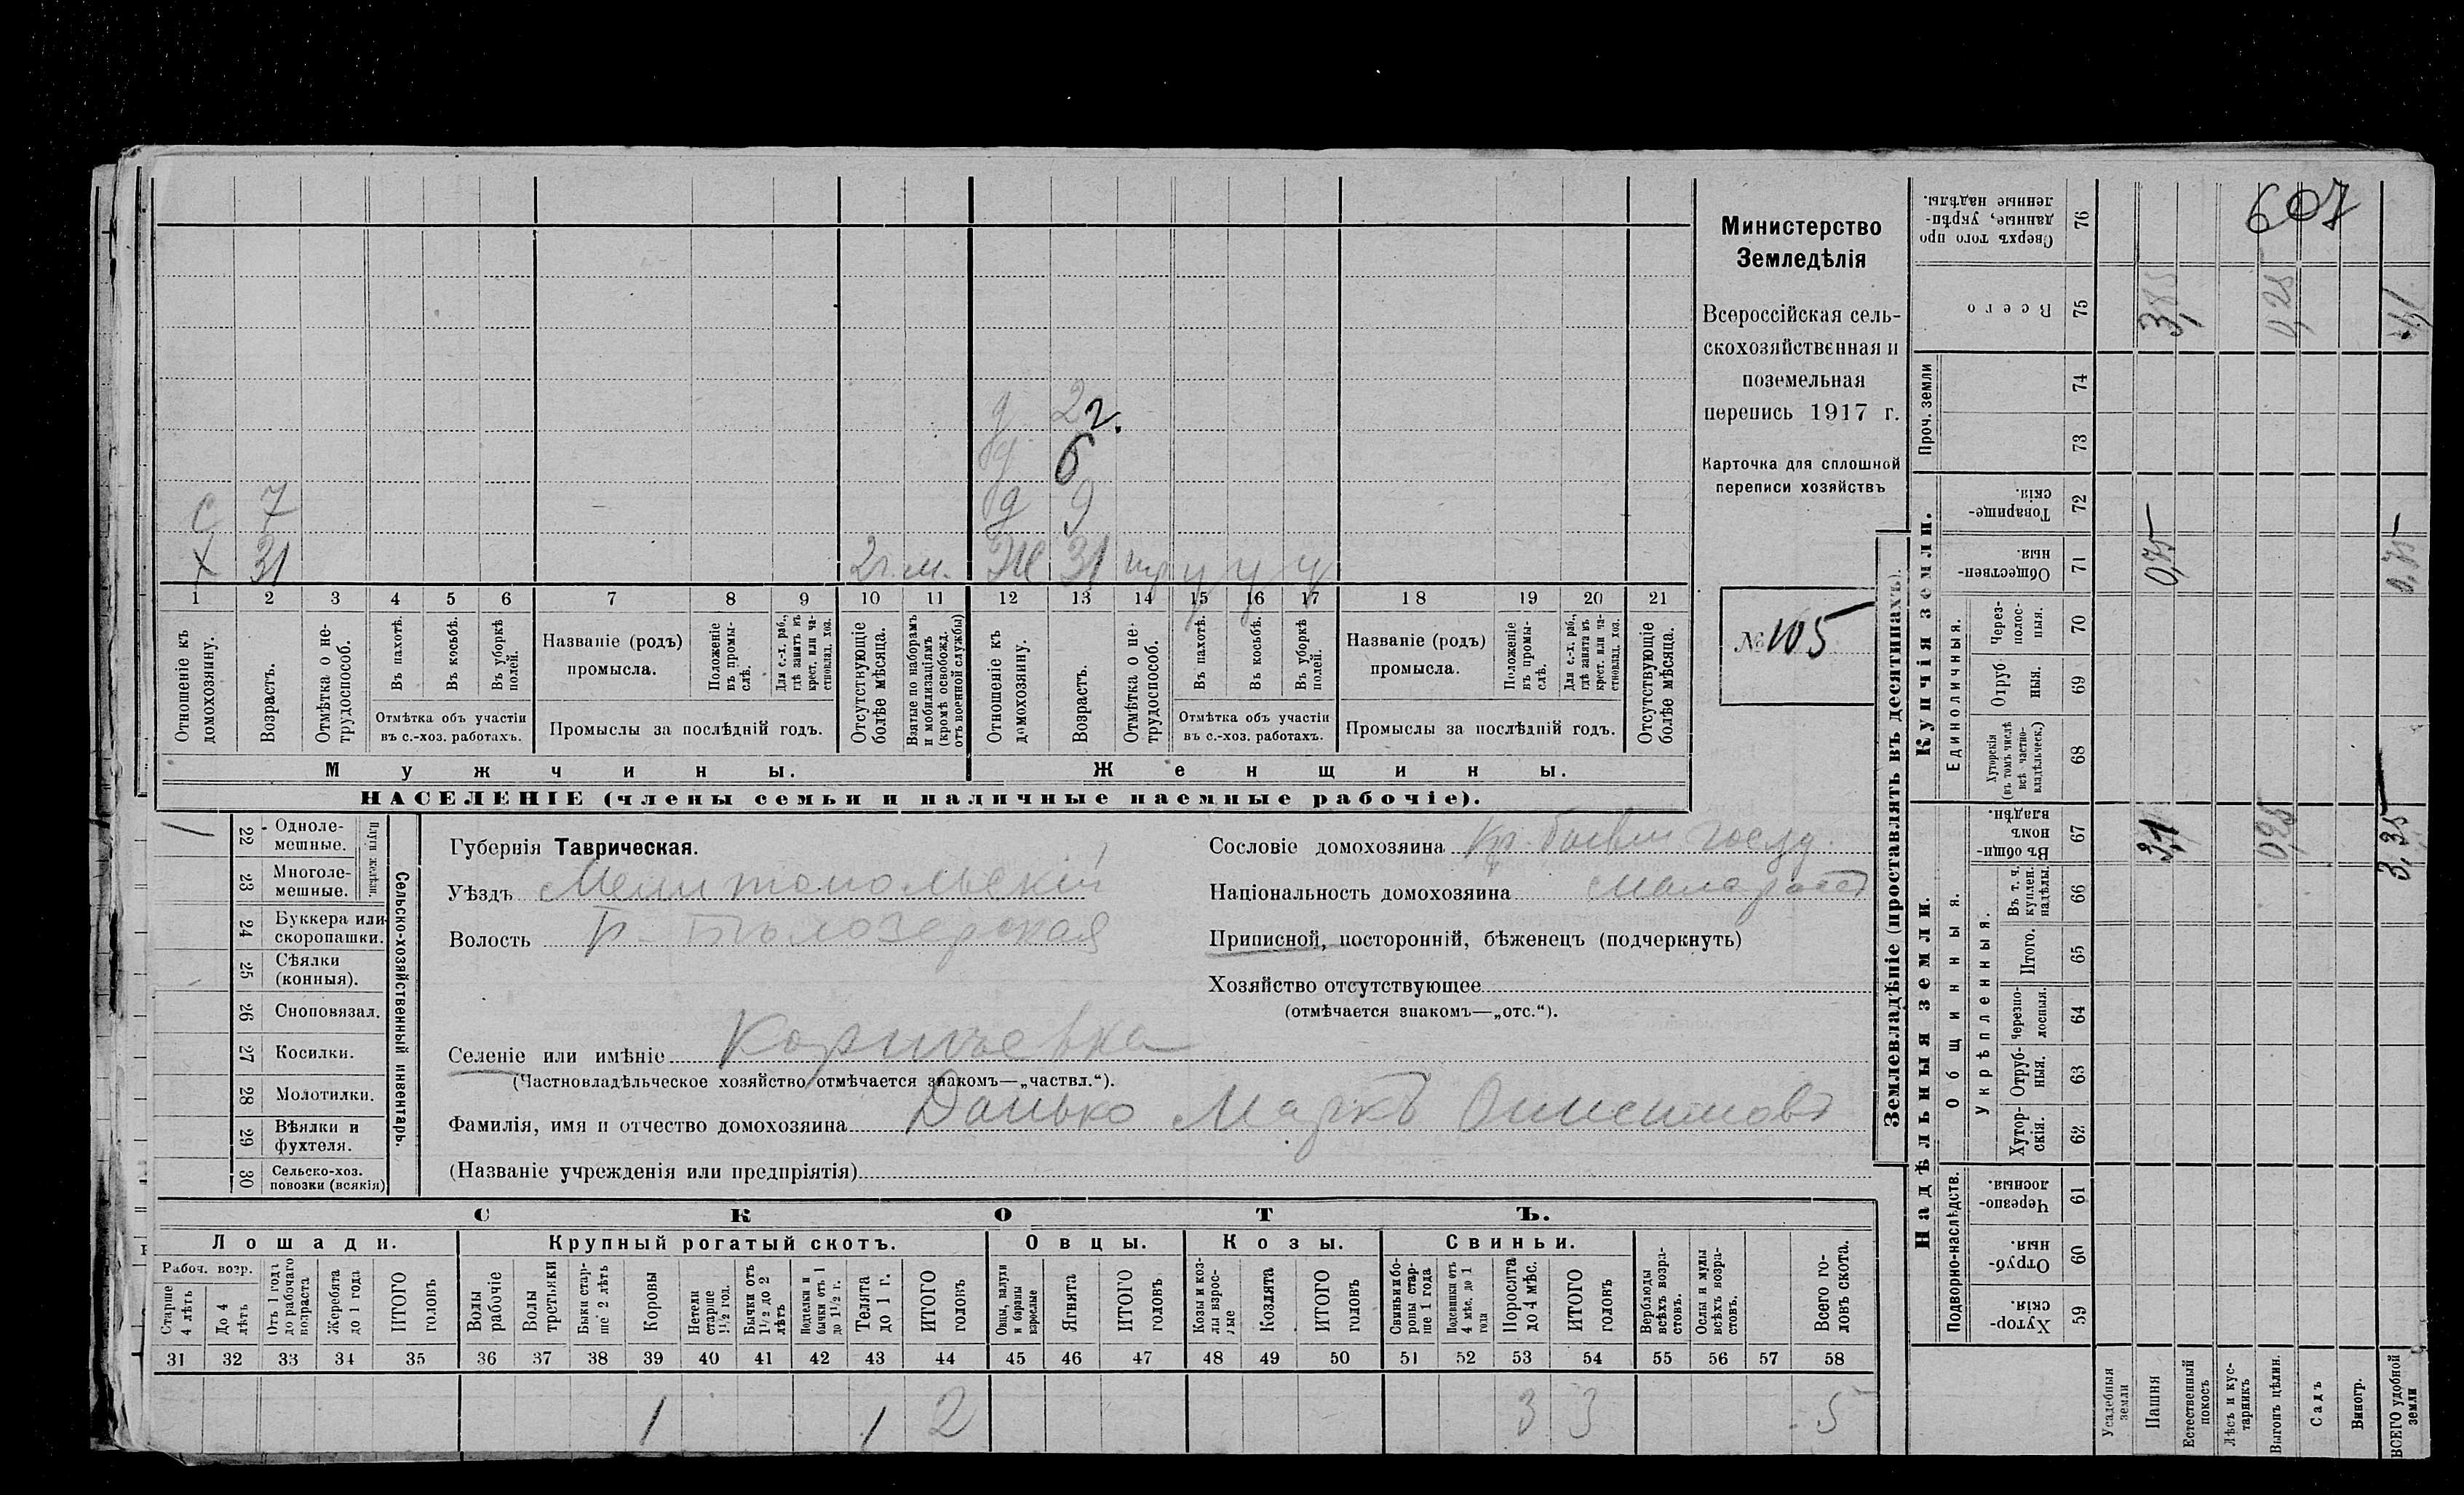 607
Министерство
Земледѣлія
Всероссійская сель-
скохозяйственная и
поземельная
перепись 1917 г.
Карточка для сплошной
переписи хозяйствъ
№ 105
д 2 2.
д 6
с 7 д 9
х 31 2 г. м. Ж 31 у у у
1 2 3 4 5 6 7 8 9 10 11 12 13 14 15 16 17 18 19 20 21
Отношеніе къ домохозяину.
Возрастъ.
Отмѣтка о не-трудоспособ.
Въ пахотѣ.
Въ косьбѣ.
Въ уборкѣ полей.
Отмѣтка объ участіи
въ с.-хоз. работахъ.
Названіе (родъ)
промысла.
Положеніе въ промы-слѣ.
Для с.-х. раб., гдѣ занятъ въ крест. или ча-стновлад. хоз.
Промыслы за послѣдній годъ.
Отсутствующіе болѣе мѣсяца.
Взятые по наборамъ и мобилизаціямъ (кромѣ освобожд. отъ военной службы)
Отношеніе къ домохозяину.
Возрастъ.
Отмѣтка о не-трудоспособ.
Въ пахотѣ.
Въ косьбѣ.
Въ уборкѣ полей.
Отмѣтка объ участіи
въ с.-хоз. работахъ.
Названіе (родъ)
промысла.
Положеніе въ промы-слѣ.
Для с.-х. раб., гдѣ занята въ крест. или ча-стновлад. хоз.
Промыслы за послѣдній годъ.
Отсутствующіе болѣе мѣсяца.
Мужчины.
Женщины.
НАСЕЛЕНІЕ (члены семьи и наличные наемные рабочіе).
Сельско-хозяйственный инвентарь.
Плуги желѣзн.
1 22 Одноле-мешные.
23 Многоле-мешные.
24 Буккера или скоропашки.
25 Сѣялки (конныя).
26 Сноповязал.
27 Косилки.
28 Молотилки.
29 Вѣялки и фухтеля.
30 Сельско-хоз. повозки (всякія)
Губернія Таврическая.
Уѣздъ Мелитопольскій
Волость Б-Бѣлозерская
Селеніе или имѣніе
(Частновладѣльческое хозяйство отмѣчается знакомъ—„частвл.“).
Фамилія, имя и отчество домохозяина Данько Маркъ Онисимовъ
(Названіе учрежденія или предпріятія)
Сословіе домохозяина Кр. бывш госуд.
Національность домохозяина малоросс
Приписной, посторонній, бѣженецъ (подчеркнуть)
Хозяйство отсутствующее
(отмѣчается знакомъ—„отс.“).
СКОТЪ.
Лошади. Крупный рогатый скотъ. Овцы. Козы. Свиньи.
Рабоч. возр.
Старше 4 лѣтъ
До 4 лѣтъ
Отъ 1 года до рабочаго возраста
Жеребята до 1 года
ИТОГО головъ
Волы рабочіе
Волы третьяки
Быки стар-ше 2 лѣтъ
Коровы
Нетели старше 1½ год.
Бычки отъ 1½ до 2 лѣтъ
Подтелки и бычки отъ 1 до 1½ г.
Телята до 1 г.
ИТОГО головъ
Овцы, валухи и бараны взрослые
Ягнята
ИТОГО головъ
Козы и коз-лы взрос-лые
Козлята
ИТОГО головъ
Свиньи и бо-ровы стар-ше 1 года
Подсвинки отъ 4 мѣс. до 1 года
Поросята до 4 мѣс.
ИТОГО головъ
Верблюды всѣхъ возра-стовъ.
Ослы и мулы всѣхъ возра-стовъ.
Всего го-ловъ скота.
31 32 33 34 35 36 37 38 39 40 41 42 43 44 45 46 47 48 49 50 51 52 53 54 55 56 57 58
1 1 2 3 3 5
Землевладѣніе (проставлять въ десятинахъ).
Надѣльныя земли.
Купчія земли.
Проч. земли
Подворно-наслѣдств.
Общинныя.
Укрѣпленныя.
Единоличныя.
Сверхъ того про данные, укрѣп-ленные надѣлы. 76
Всего 75 3,85 0,25
74
73
Товарище-скія. 72
Обществен-ныя. 71 0,75 0,75
Черес-полос-ныя. 70
Отруб ныя. 69
Хуторскія (въ томъ числѣ всѣ частно-владѣльческ.) 68
Въ общин-номъ владѣн. 67 3,1 0,25 3,35
Въ т. ч. куплен. надѣлы. 66
Итого. 65
Черезпо-лосныя. 64
Отруб-ныя. 63
Хутор-скія. 62
Черезпо-лосныя. 61
Отруб-ныя. 60
Хутор-скія. 59
Усадебныя земли
Пашня
Естественный покосъ
Лѣсъ и кус-тарникъ
Выгонъ цѣлин.
Садъ
Виногр.
ВСЕГО удобной земли